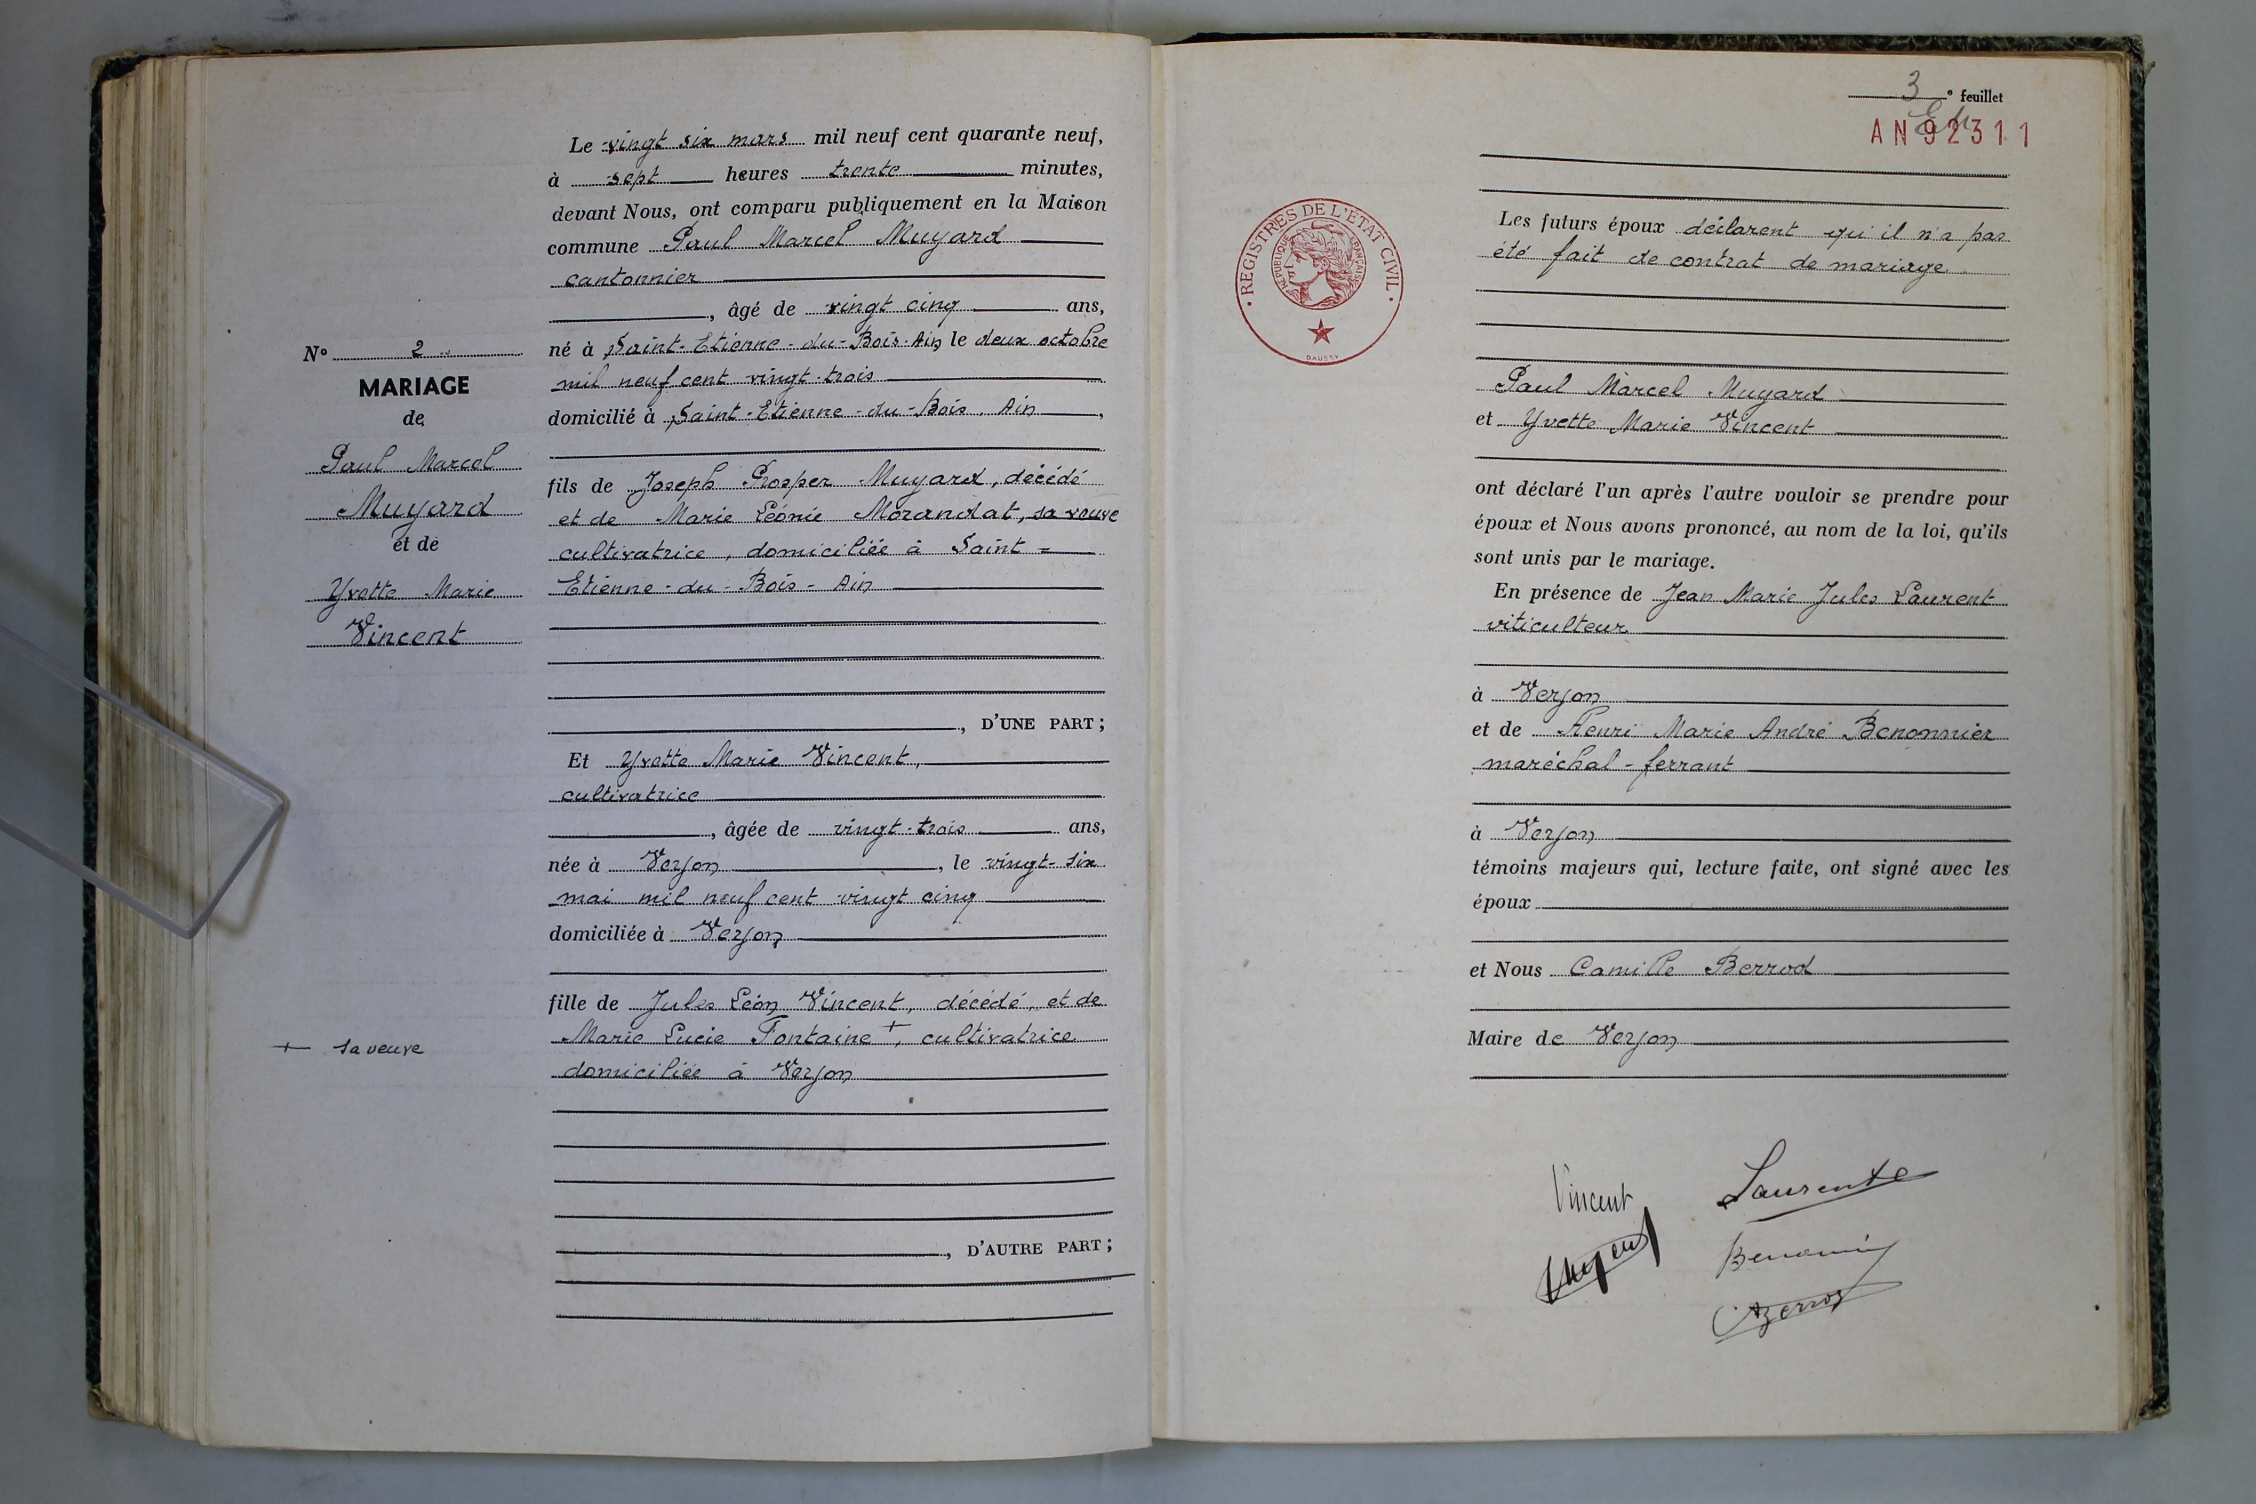 N° 2
MARIAGE
de
Paul Marcel
Muyard
et de
Yvette Marie
Vincent
+ sa veuve
Le vingt six mars mil neuf cent quarante neuf,
à sept heures trente minutes,
devant Nous, ont comparu publiquement en la Maison
commune Paul Marcel Muyard
cantonnier
, âgé de vingt cinq ans,
né à Saint-Etienne-du-Bois-Ain, le deux octobre
mil neuf cent vingt-trois
domicilié à Saint-Etienne-du-Bois. Ain,
fils de Joseph Prosper Muyard, décédé
et de Marie Léonie Morandat, sa veuve
cultivatrice, domiciliée à Saint-
Etienne-du-Bois-Ain
, D'UNE PART ;
Et Yvette Marie Vincent,
cultivatrice
, âgée de vingt-trois ans,
née à Verjon, le vingt-six
mai mil neuf cent vingt cinq
domiciliée à Verjon
fille de Jules Léon Vincent, décédé, et de
Marie Lucie Fontaine +, cultivatrice
domiciliée à Verjon
, D'AUTRE PART ;
3e feuillet
AN92311
REGISTRES DE L'ETAT CIVIL
REPUBLIQUE FRANÇAISE
DAUSSY
Les futurs époux déclarent qu'il n'a pas
été fait de contrat de mariage.
Paul Marcel Muyard
et Yvette Marie Vincent
ont déclaré l'un après l'autre vouloir se prendre pour
époux et Nous avons prononcé, au nom de la loi, qu'ils
sont unis par le mariage.
En présence de Jean Marie Jules Laurent
viticulteur
à Verjon
et de Henri Marie André Benonnier
maréchal-ferrant
à Verjon
témoins majeurs qui, lecture faite, ont signé avec les
époux
et Nous Camille Berrod
Maire de Verjon
Vincent
Laurent